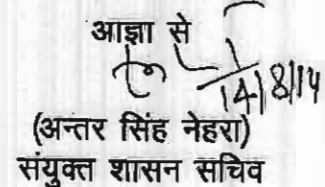 आज्ञा से
14/8/14
(अन्तर सिंह नेहरा)
संयुक्त शासन सचिव